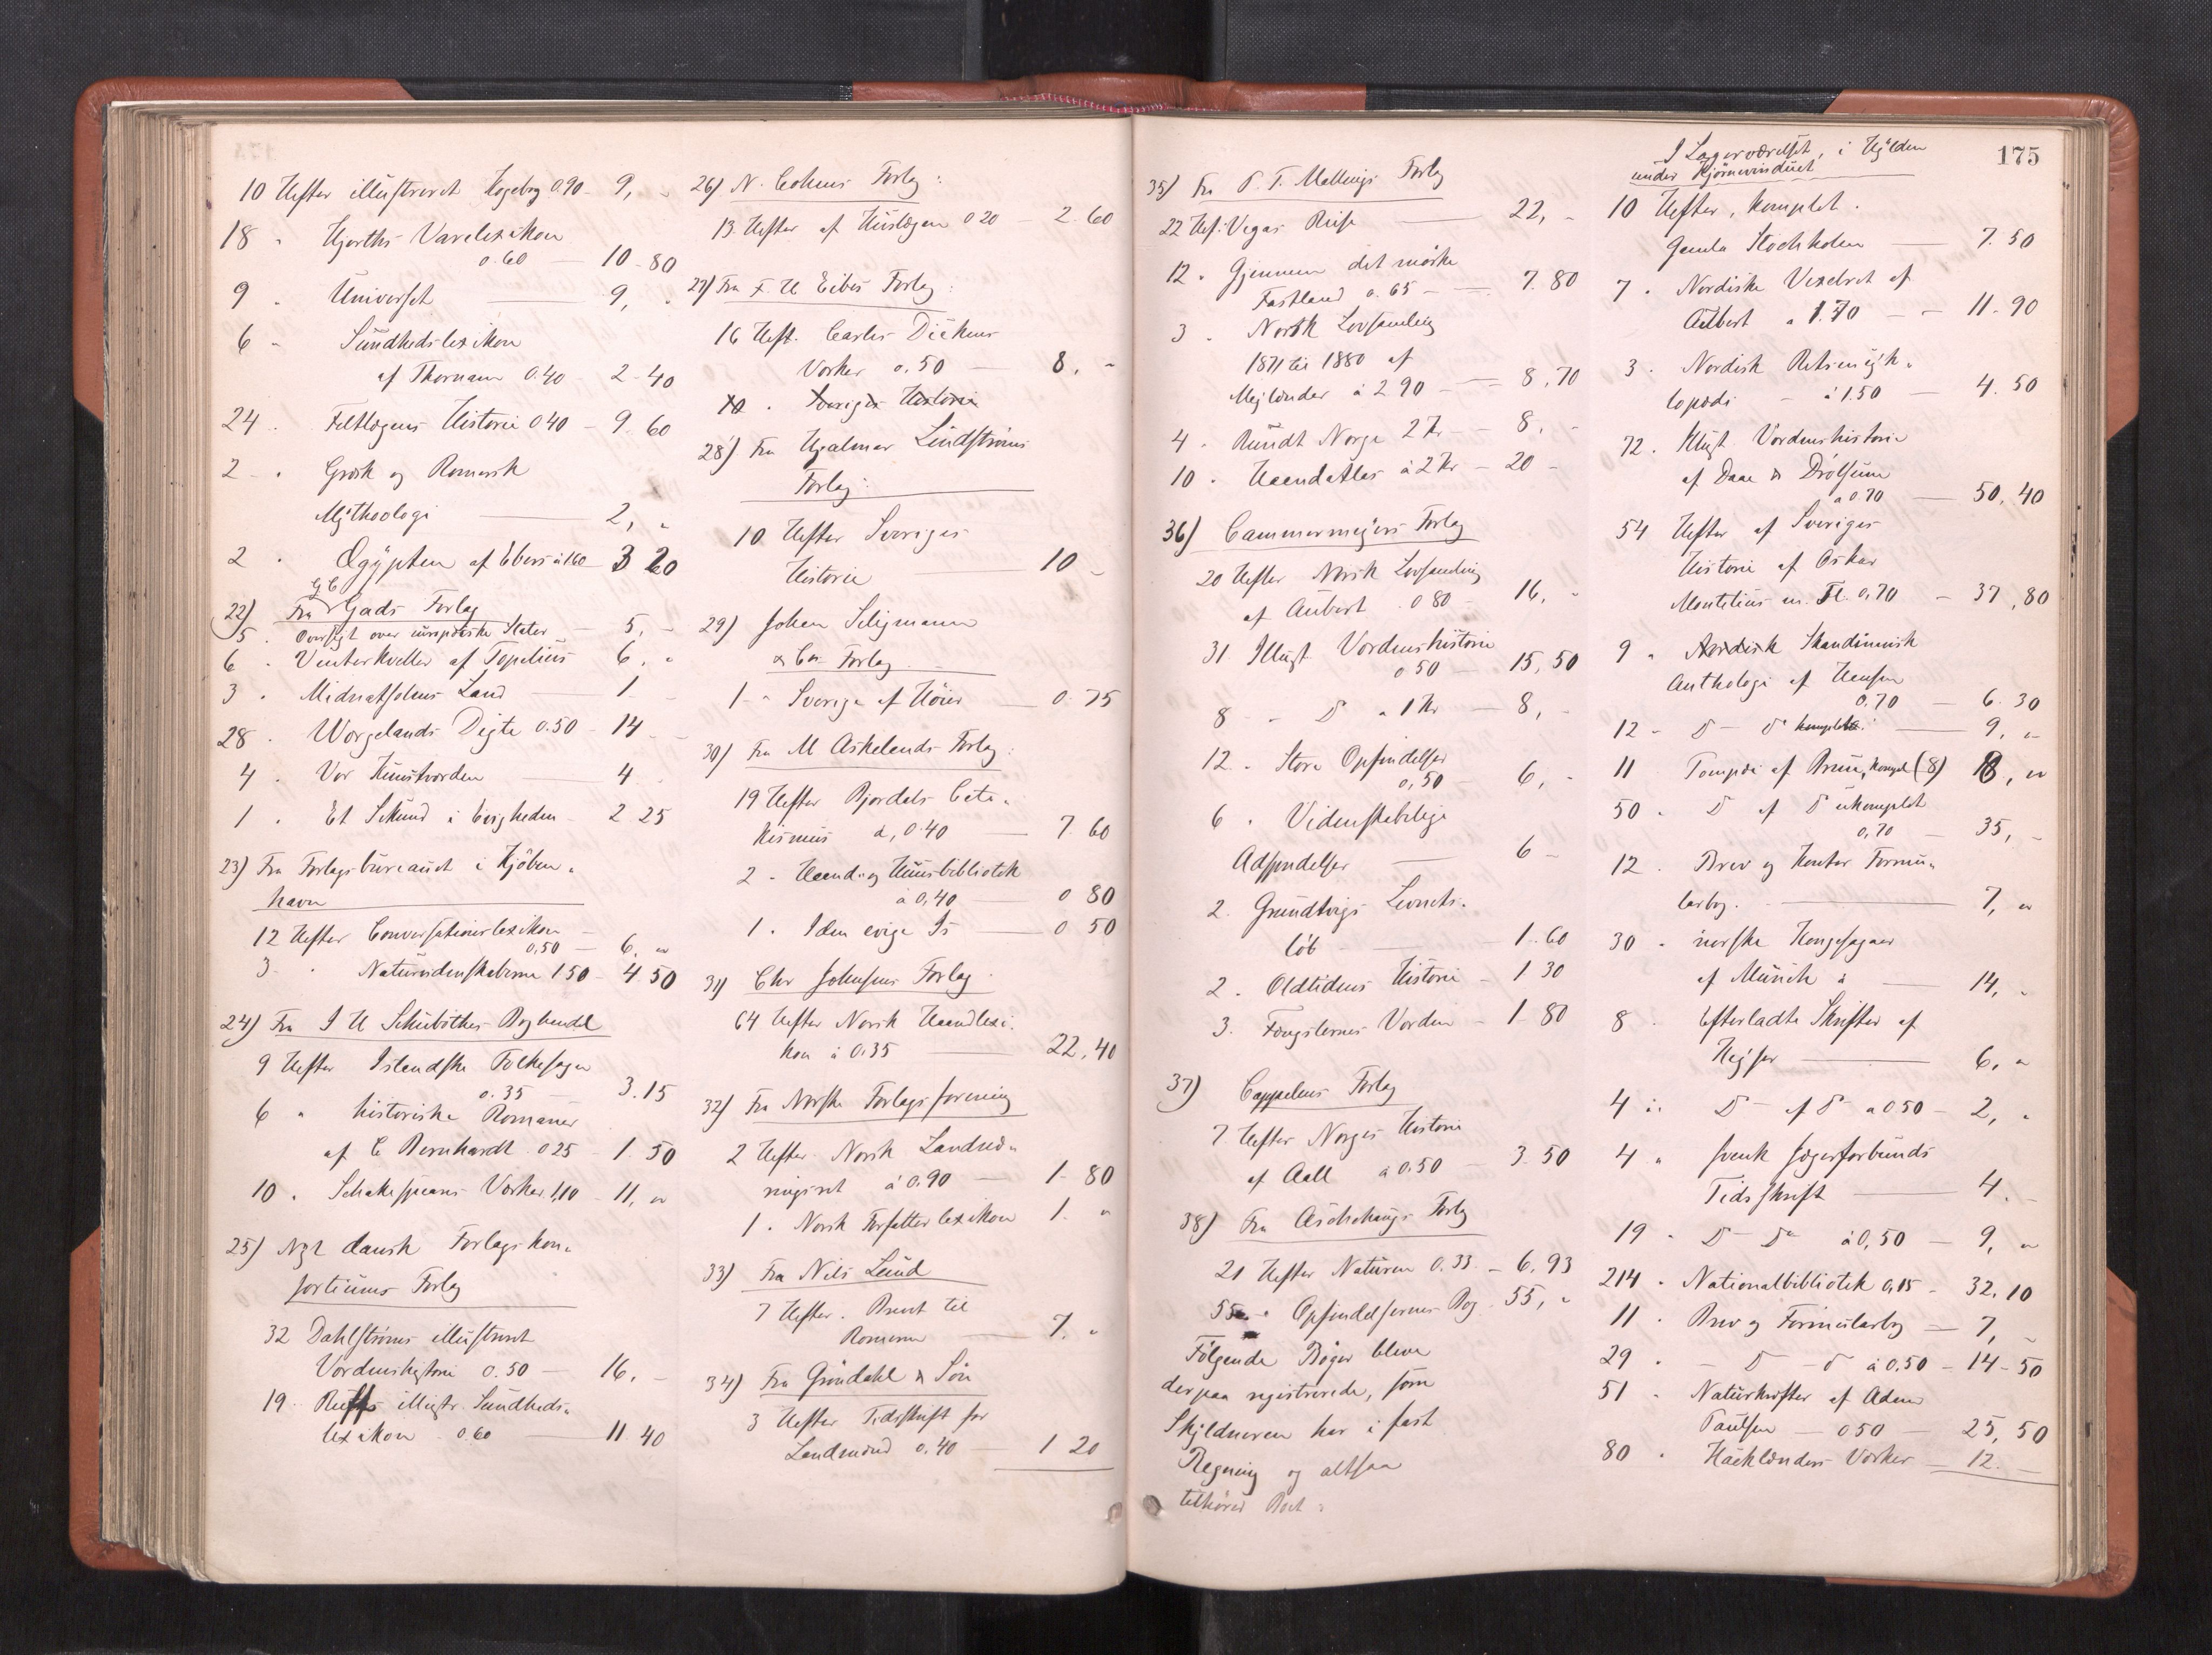 10 Hefter illustreret Kogebog 0.90 - 9, "
18 " Hjorths Varelexikon
0.60 — 10-80
9 " Universet — 9, "
6 " Sundhedslexikon
af Thornam 0.40 - 2-40
24 " Feltlægens Historie 0 40 - 9 60
2 " Græsk og Romersk
Mythologi — 2, "
2 " Ægypten af Ebers à 1.60 — 3 20
22) Fra G E C Gads Forlag
5 " Oversigt over europæiske Stater — 5, -
6 " Vinterkvelle af Topelius 6, "
3 " Midnatsolens Land — 1 -
28 " Wergelands Digte 0.50 - 14 -
4 " Vor Klunstverden — 4 -
1 " Et Sekund i Evigheden - 2 25
23) Fra Forlagsbureauet i Kjöben-
havn
12 Hefter Conversationslexikon
0,50 — 6, "
3 " Naturvidenskaberne 1 50 - 4 50
24) Fra I H Schubothes Boghandl
9 Hefter Islandske Folkesager
0.35 — 3.15
6 " historiske Romaner
af C Bernhardt 0 25 - 1.50
10 " Schakespeares Værker 1,10 - 11, "
25) Nyt dansk Forlagskon-
sortiums Forlag
32 Dahlströms illustreret
Verdenshistorie 0.50 — 16, -
19 illustr. Sundheds-
lexikon 0.60 — 11 40
26) N. Cohens Forlag:
13 Hefter af Huslægen 0 20 - 2.60
27) Fra F. H Eibes Forlag:
16 Heft. Carles Dickens
Værker 0.50 — 8, -
10 " Sveriges Historie
28) Fra Hjalmar Lindströms
Forlag:
10 Hefter Sveriges
Historie — 10 -
29) Johan Seligmann
& Co. Forlag
1 - " Sverige af Höier — 0.75
30) Fra M Askelands Forlag:
19 Hefter Bjordals Cate-
kismus à, 0.40 — 7.60
2 - Haand- og Huusbibliotek
à 0,40 — 0 80
1 . I den evige Is — 0 50
31) Chr Johnsens Forlag.
64 Hefter Norsk Haandlexi-
kon à 0.35 — 22.40
32) Fra Norske Forlagsforening
2 Hefter Norsk Landvæ-
singsret à 0.90 — 1-80
1 . Norsk Forfatterlexikon 1. "
33) Fra Nils Lund
7 Hefter. Brevet til
Romerne — 7. "
34) Fra Gröndahl & Sön
3 Hefter Tidsskrift for
Landmænd 0.40 — 1 20
175
35) Fra P. T. Mallings Forlag
22 Hef. Vegas Reise — 22, -
12 " Gjennem det mörke
Fastland 0.65 — 7.80
3 " Norsk Lovsamling
1871 til 1880 af
Mejlænder à 2 90 — 8,70
4 " Rundt Norge 2 Kr — 8, -
10 " Haandatlas à 2 Kr — 20 -
36) Cammermeyers Forlag
20 Hefter Norsk Lovsamling
af Aubert 0 80 - 16, -
31 Illust Verdenshistorie
0 50 — 15,50
8 - D " 1 Kr — 8, -
12 " Store Opfindelser
0,50 — 6, -
6 " Videnskabelige
Adspredelser — 6 -
2. Grundtvigs Levnets-
löb — 1.60
2. Oldtidens Historie - 1 30
3. Fængslernes Verden - 1 80
37) Cappelens Forlag
7. Hefter Norges Historie
af Aall à 0.50 — 3.50
38) Fra Aschehougs Forlag
21 Hefter Naturen 0.33. - 6.93
55 " Opfindelsernes Bog - 55, "
Fölgende Böger bleve
derpaa registrerede, som
Skyldneren har i fast
Regning og altsaa
tilhörer Boet:
I Lagerværelset, i Hylden
under Hjörnevinduet
10 Hefter, komplet.
Gamla Stockholm — 7.50
7 " Nordiske Vexelret af
Aubert " 1.70 — 11-90
3 " Nordisk Retsencyk-
lopædi - à 1.50 — 4.50
72 " Illust Verdenshistorie
af Daae & Drolsum
à 0.70 — 50,40
54 Hefter af Sveriges
Historie af Oskar
Montelius m. Fl. 0,70 - 37,80
9 " Nordisk Skandinavisk
Anthologi af Hansen
0.70 — 6.30
12 - D - D komplette — 9, "
11 Pompei af Bruun, kompl (8) 18, "
50 - D af D ukomplet
0,70 — 35, -
12 . Brev og Kontor Formu-
larbog. — 7, "
30 " norske Kongesagaer
af Munch à — 14, "
8 " Efterladte Skrifter af
Keyser — 6, "
4 " D - af D à 0 50 — 2, "
4 " svensk Jægerforbunds
Tidsskrift — 4. -
19 " D - D " à 0,50 — 9, "
214 " Nationalbibliotek 0,15 - 32.10
11 " Brev og Formularbog — 7, -
29 " - D - D à 0.50 - 14-50
51 " Naturkræfter af Adam
Paulsen — 0 50 — 25,50
80 " Hacklænders Værker — 12. -